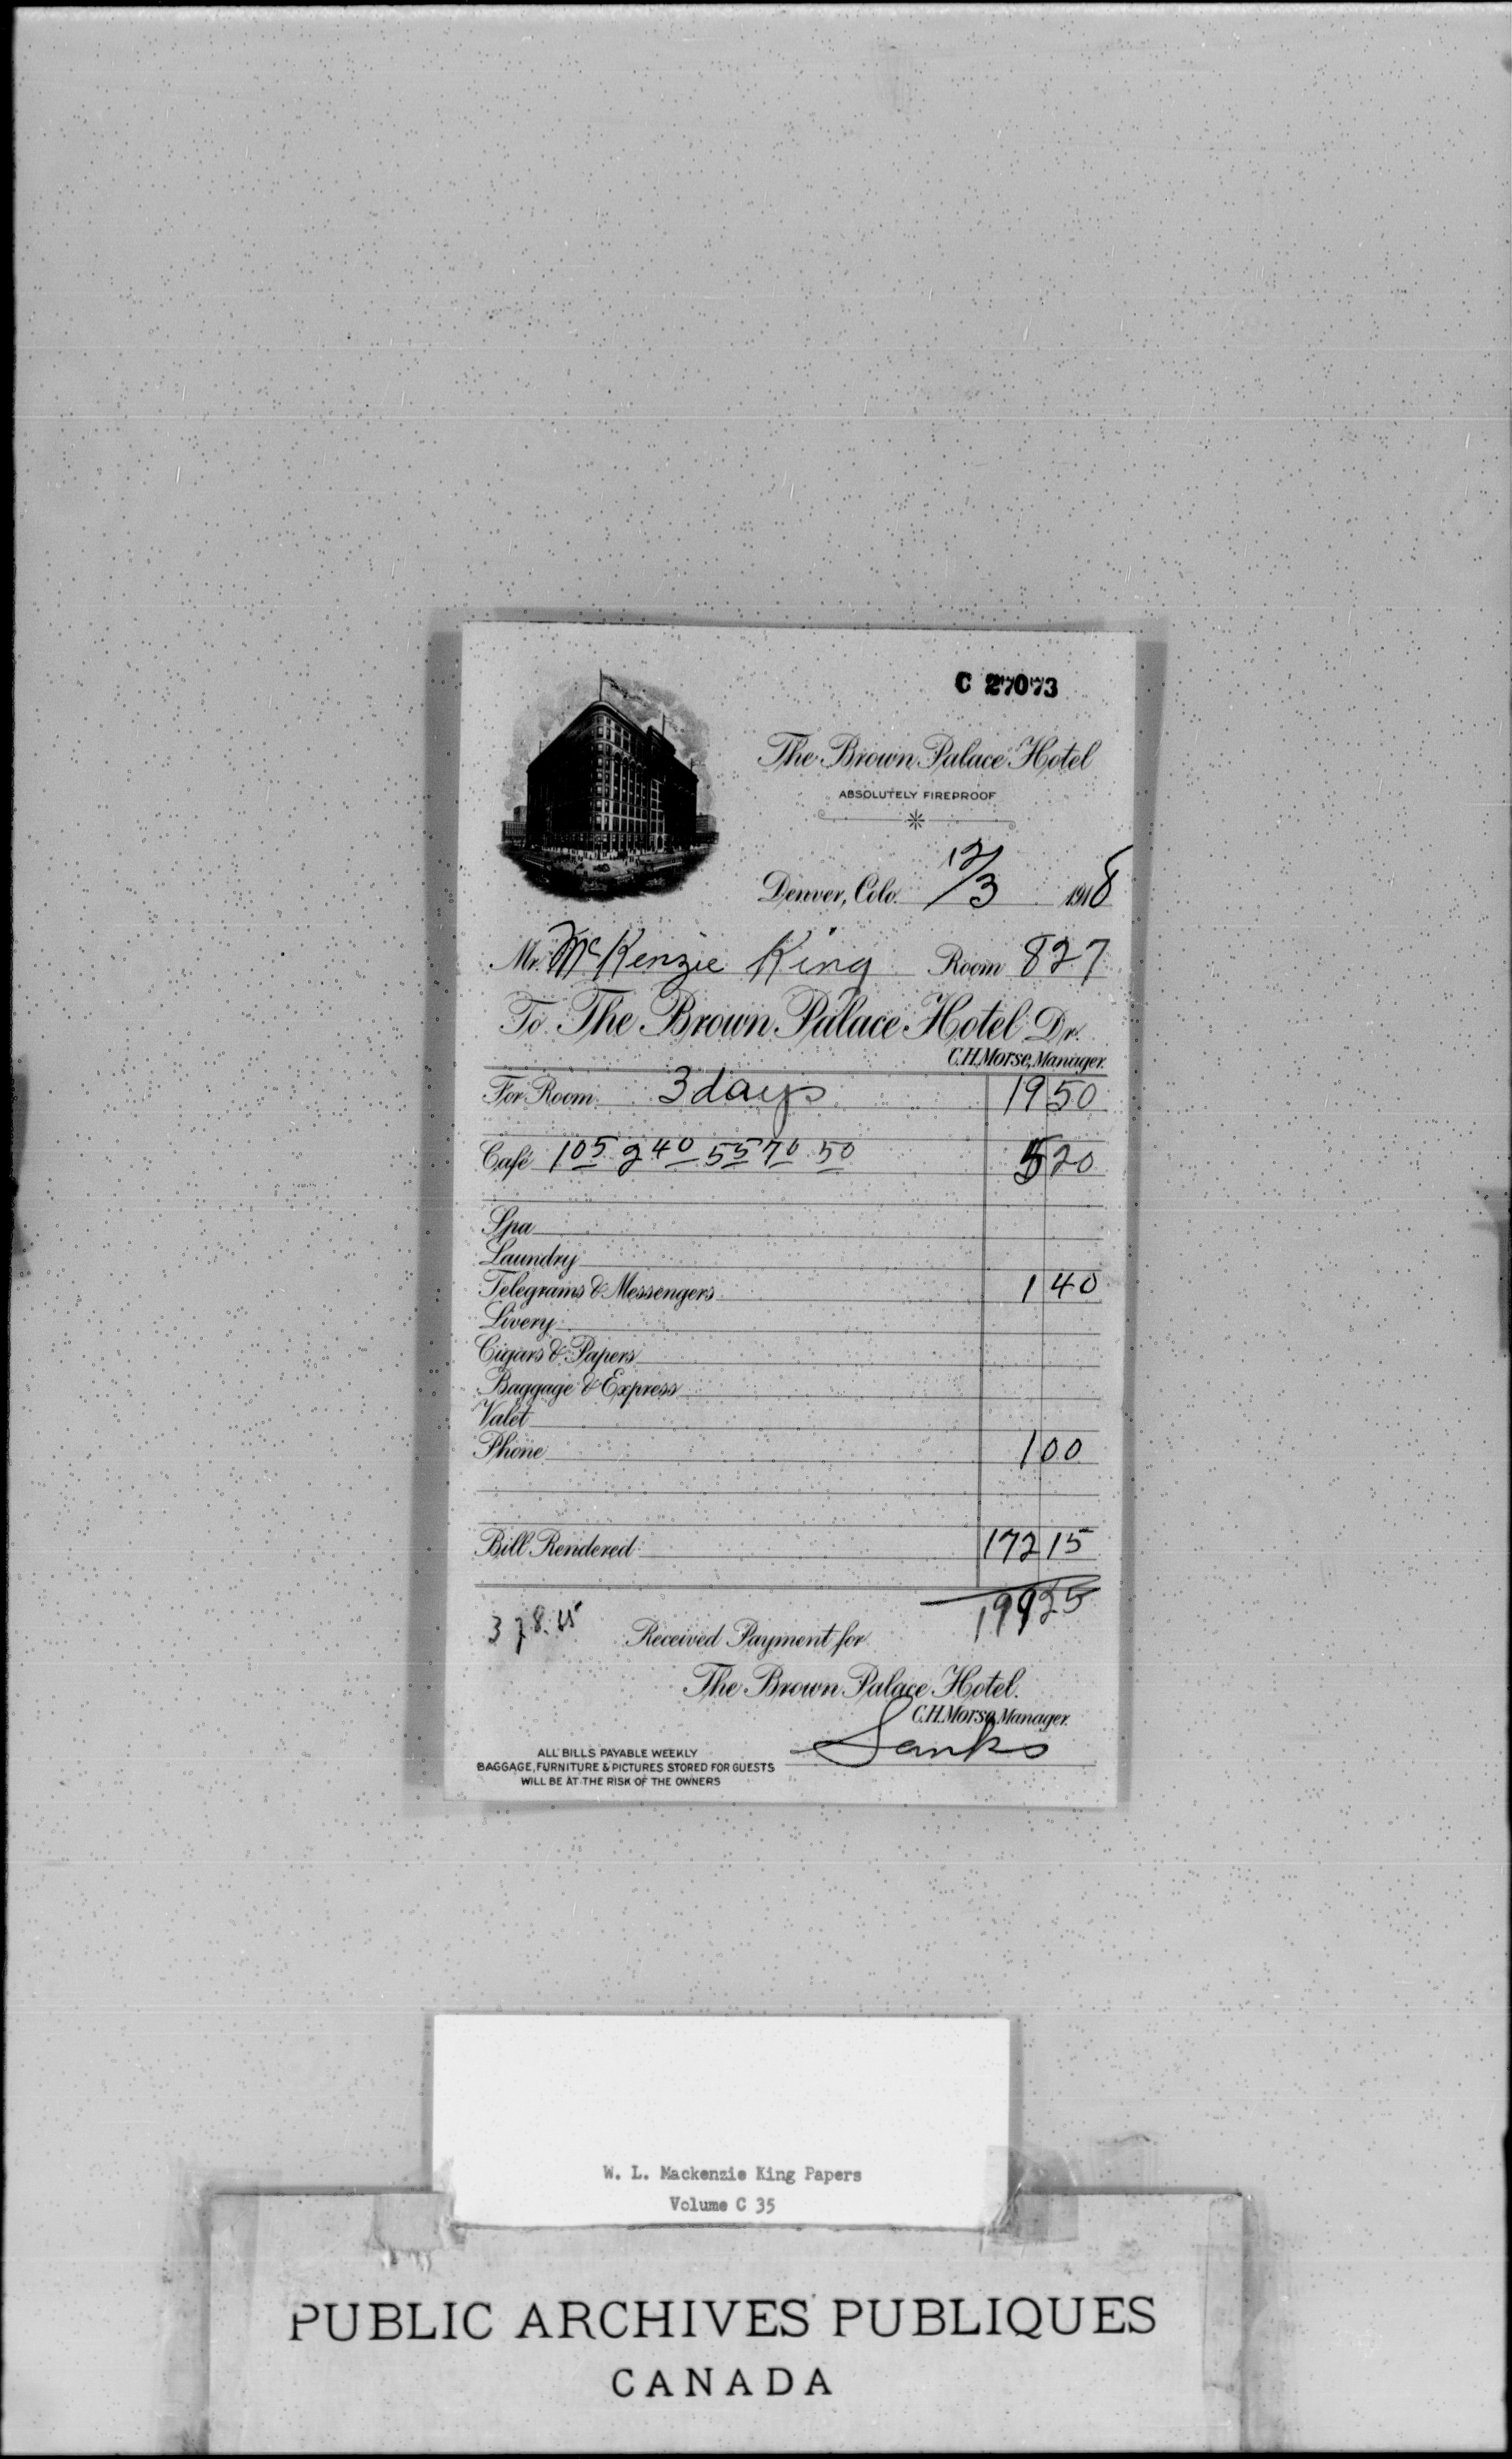 C 27073
The Brown Palace Hotel
ABSOLUTELY FIREPROOF
Denver, Colo. 12/3 1918
Mr. McKenzie King Room 827
To The Brown Palace Hotel Dr.
C.H. Morse, Manager.
For Room 3 days 19 50
Café 105 240 55 70 50 5 20
Spa
Laundry
Telegrams & Messengers 1 40
Livery
Cigars & Papers
Baggage & Express
Valet
Phone 1 00
Bill Rendered 172 15
199 25
Received Payment for
The Brown Palace Hotel.
C.H. Morse, Manager.
ALL BILLS PAYABLE WEEKLY
BAGGAGE, FURNITURE & PICTURES STORED FOR GUESTS
WILL BE AT THE RISK OF THE OWNERS
W. L. Mackenzie King Papers
Volume C 35
PUBLIC ARCHIVES PUBLIQUES
CANADA